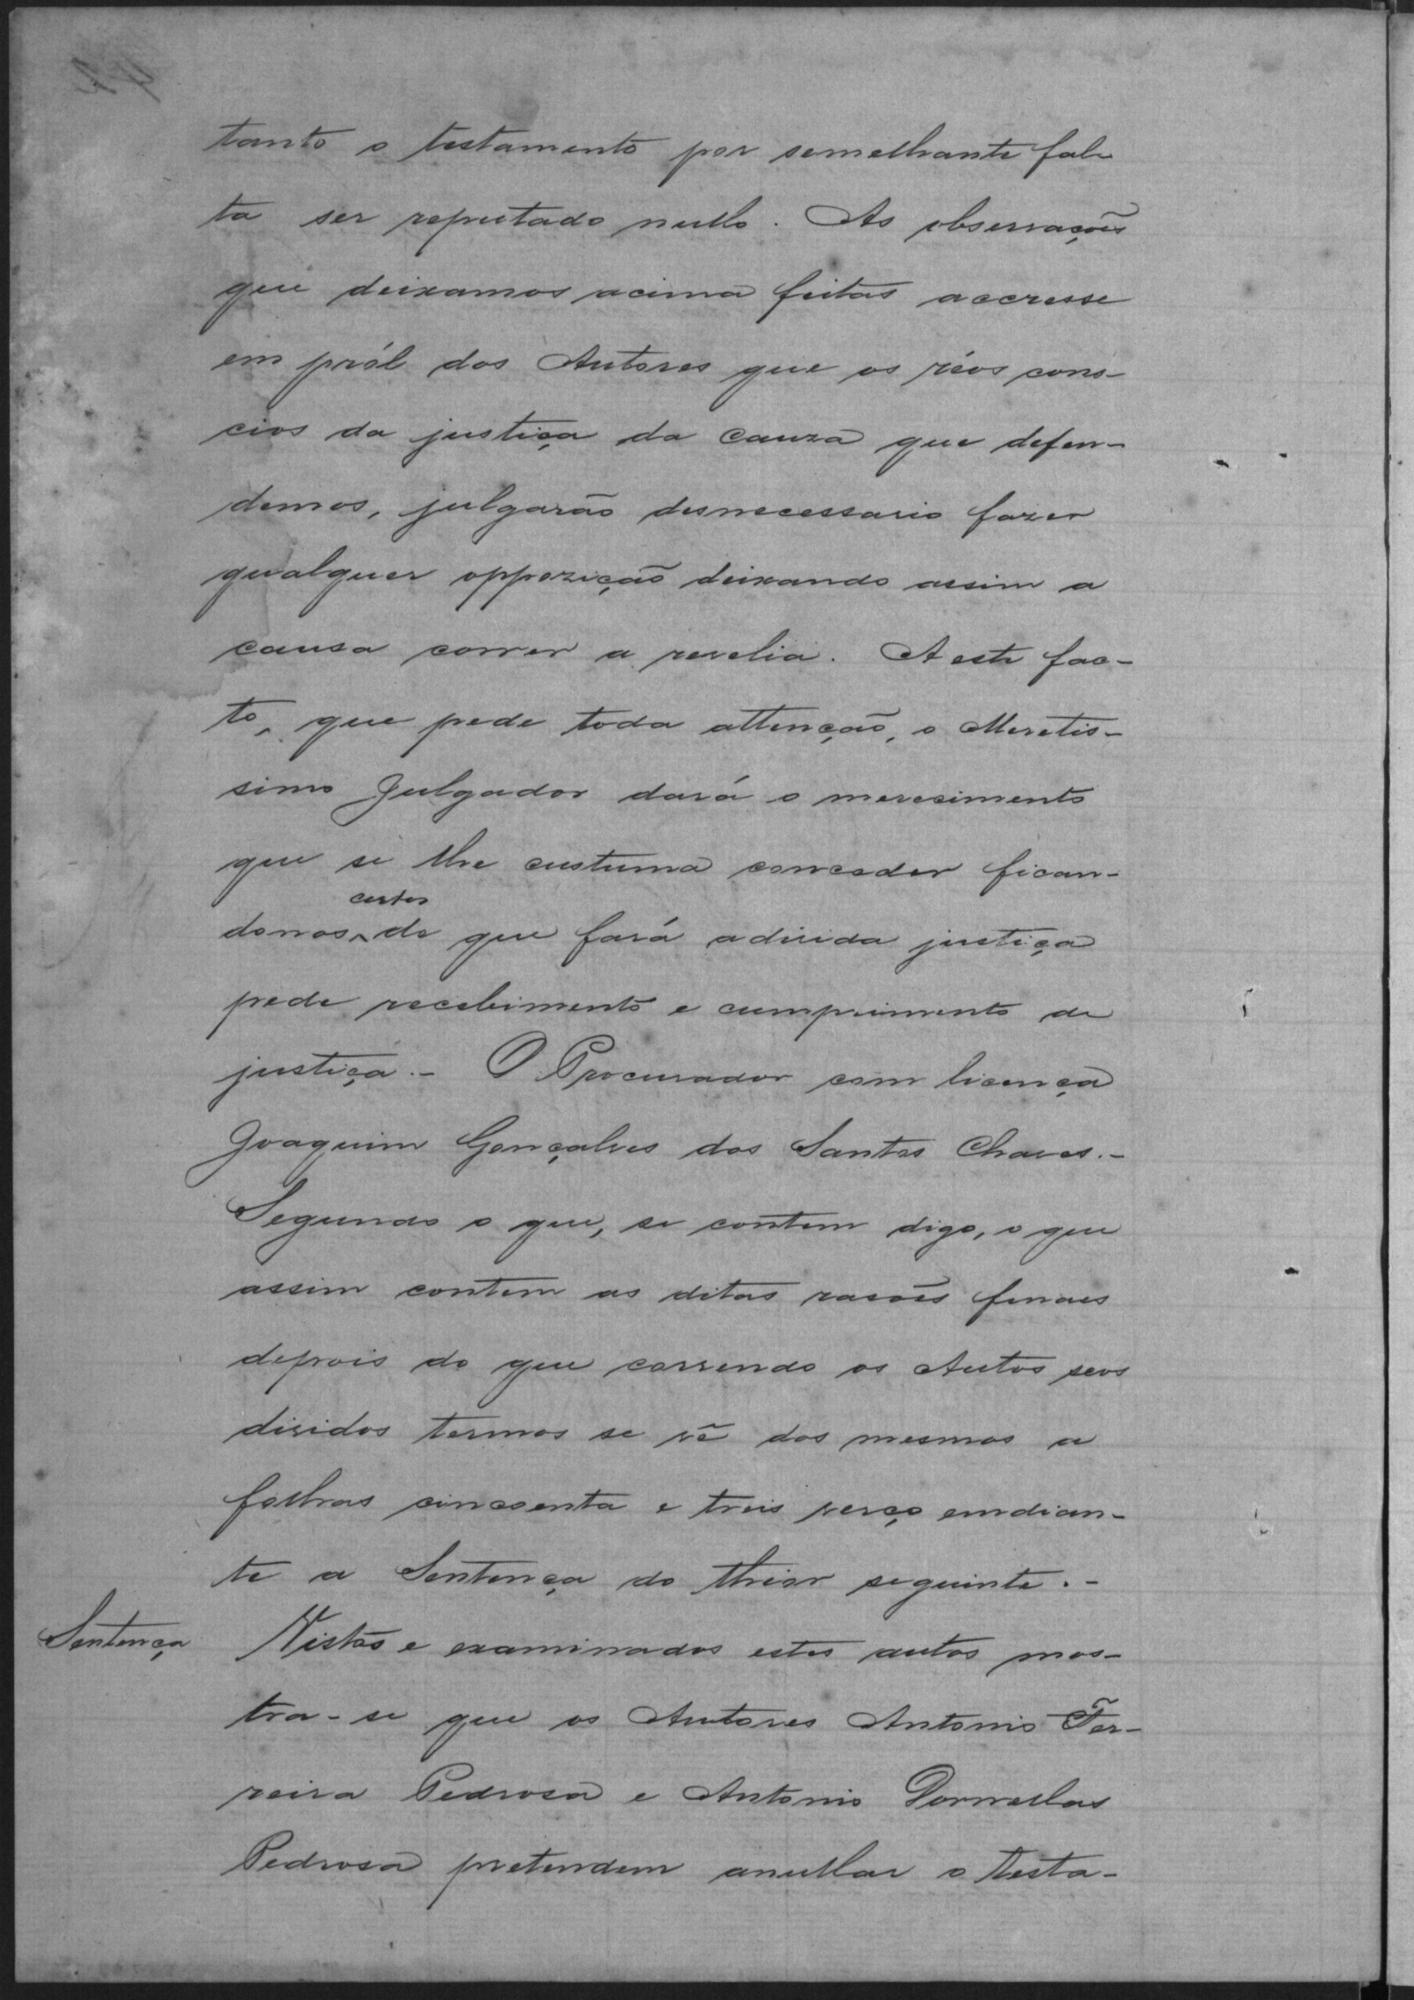 tanto o testamento por semelhante fal-
ta ser reputado nullo. As observações
que deixamos acima feitas accresse
em pról dos Autores que os réos cons-
cios da justiça da cauza que defen-
demos, julgarão desnecessario fazer
qualquer opposição deixando assim a
causa correr a revelia. A este fac-
to, que pede toda attenção, o Meretis-
simo Julgador dará o meresimento
que se lhe custuma conceder fican-
certos
donos de que fará a divida justiça
pede recebimento e cumprimento de
justiça.- O Procurador com licença
Joaquim Gonçalves dos Santos Chaves.-
Segundo o que, se contem digo, o que
assim contem as ditas rasões finaes
depois do que correndo os Autos seos
dividos termos se vê dos mesmos a
folhas cincoenta e treis verço emdian-
te a Sentença do theor seguinte.-
Sentença Vistos e examinados estes autos mos-
tra-se que os Autores Antonio Fer-
reira Pedrosa e Antonio Dornellas
Pedrosa pretendem anullar o testa-